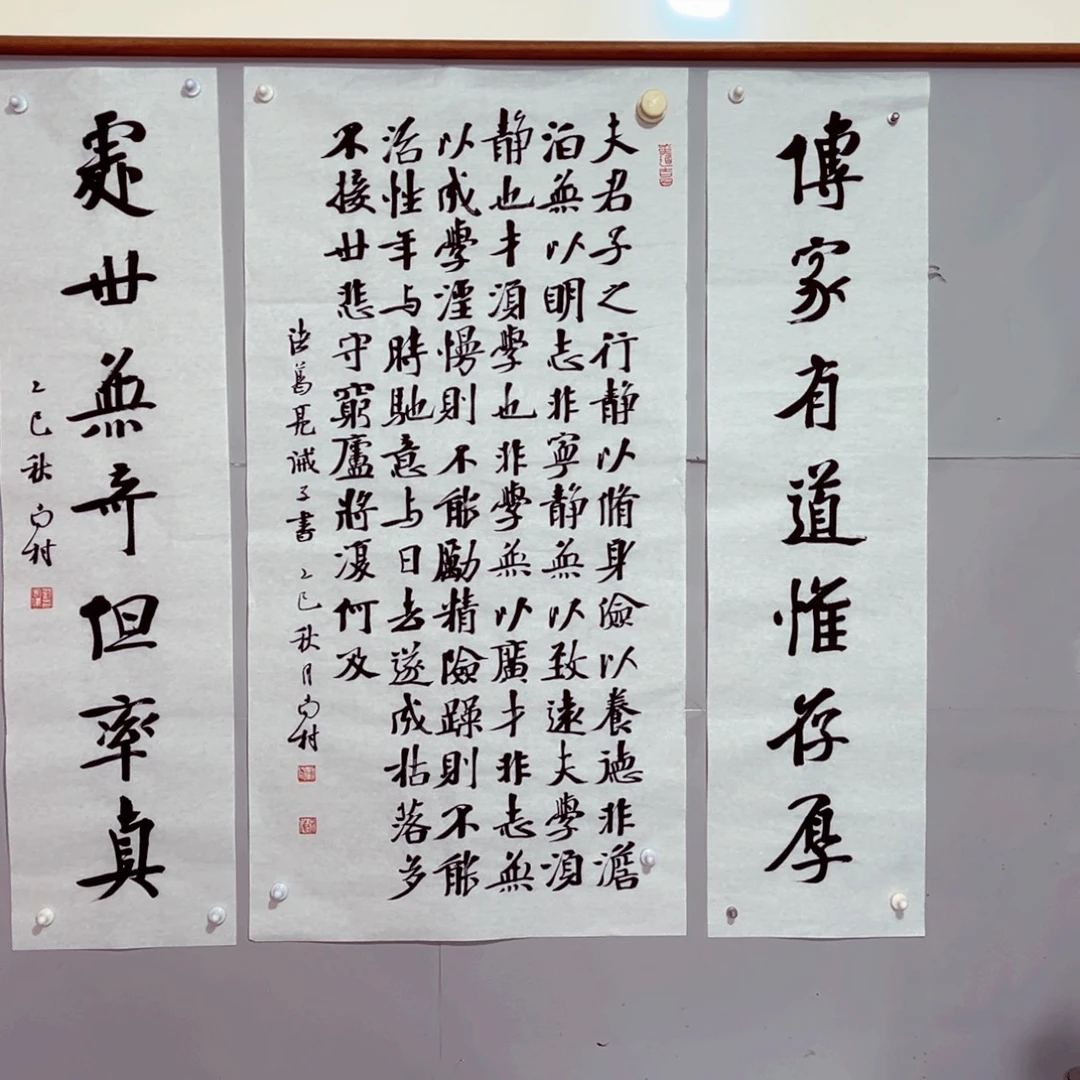 傳家有道惟存厚
夫君子之行静以脩身儉以養德非澹
泊無以明志非寧静無以致遠夫學須
静也才須學也非學無以廣才非志無
以成學淫慢則不能勵精險躁則不能
治性年与時馳意与日去遂成枯落多
不接世悲守窮廬將復何及
諸葛亮誡子書 乙巳秋月 村
處世無奇但率真
乙巳秋 村